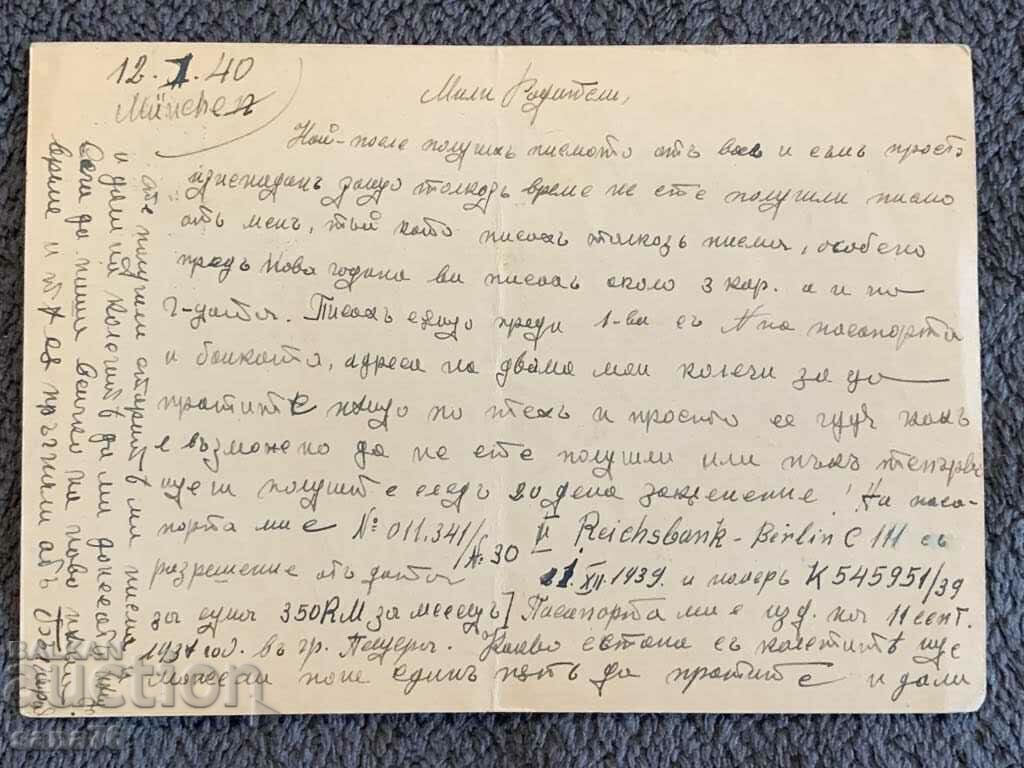 12.I.40
München
Мили Родители,
Най-после получихъ писмото отъ васъ и съмъ просто
изненаданъ защо толкозъ време не сте получили писмо
отъ менъ, тъй като писахъ толкозъ писма, особено
предъ Нова година ви писахъ около 3 кар. а и по
Писахъ също преди 1-ви съ № на паспорта
и банката, адреса на двама мои колеги за да
пратите нещо по техъ и просто се чудя какъ
е възможно да не сте получили или пъкъ тепърва
ще ги получите следъ 20 дена закъснение! На пасо-
порта ми е № 011.341/№.30 II Reichsbank - Berlin C 111 съ
разрешение отъ дата 21.XII.1939. и номеръ K 545951/39
за сума 350RM за месецъ] Паспорта ми е изд. на 11 септ.
193 год. въ гр. Какво стана съ пакетите ще
можели поне единъ пѫть да пратите и дали
сте получили старитѣ ми писма
и дали колегитѣ да ми донесатъ
Сега да пиша всичко на ново
време и отъ